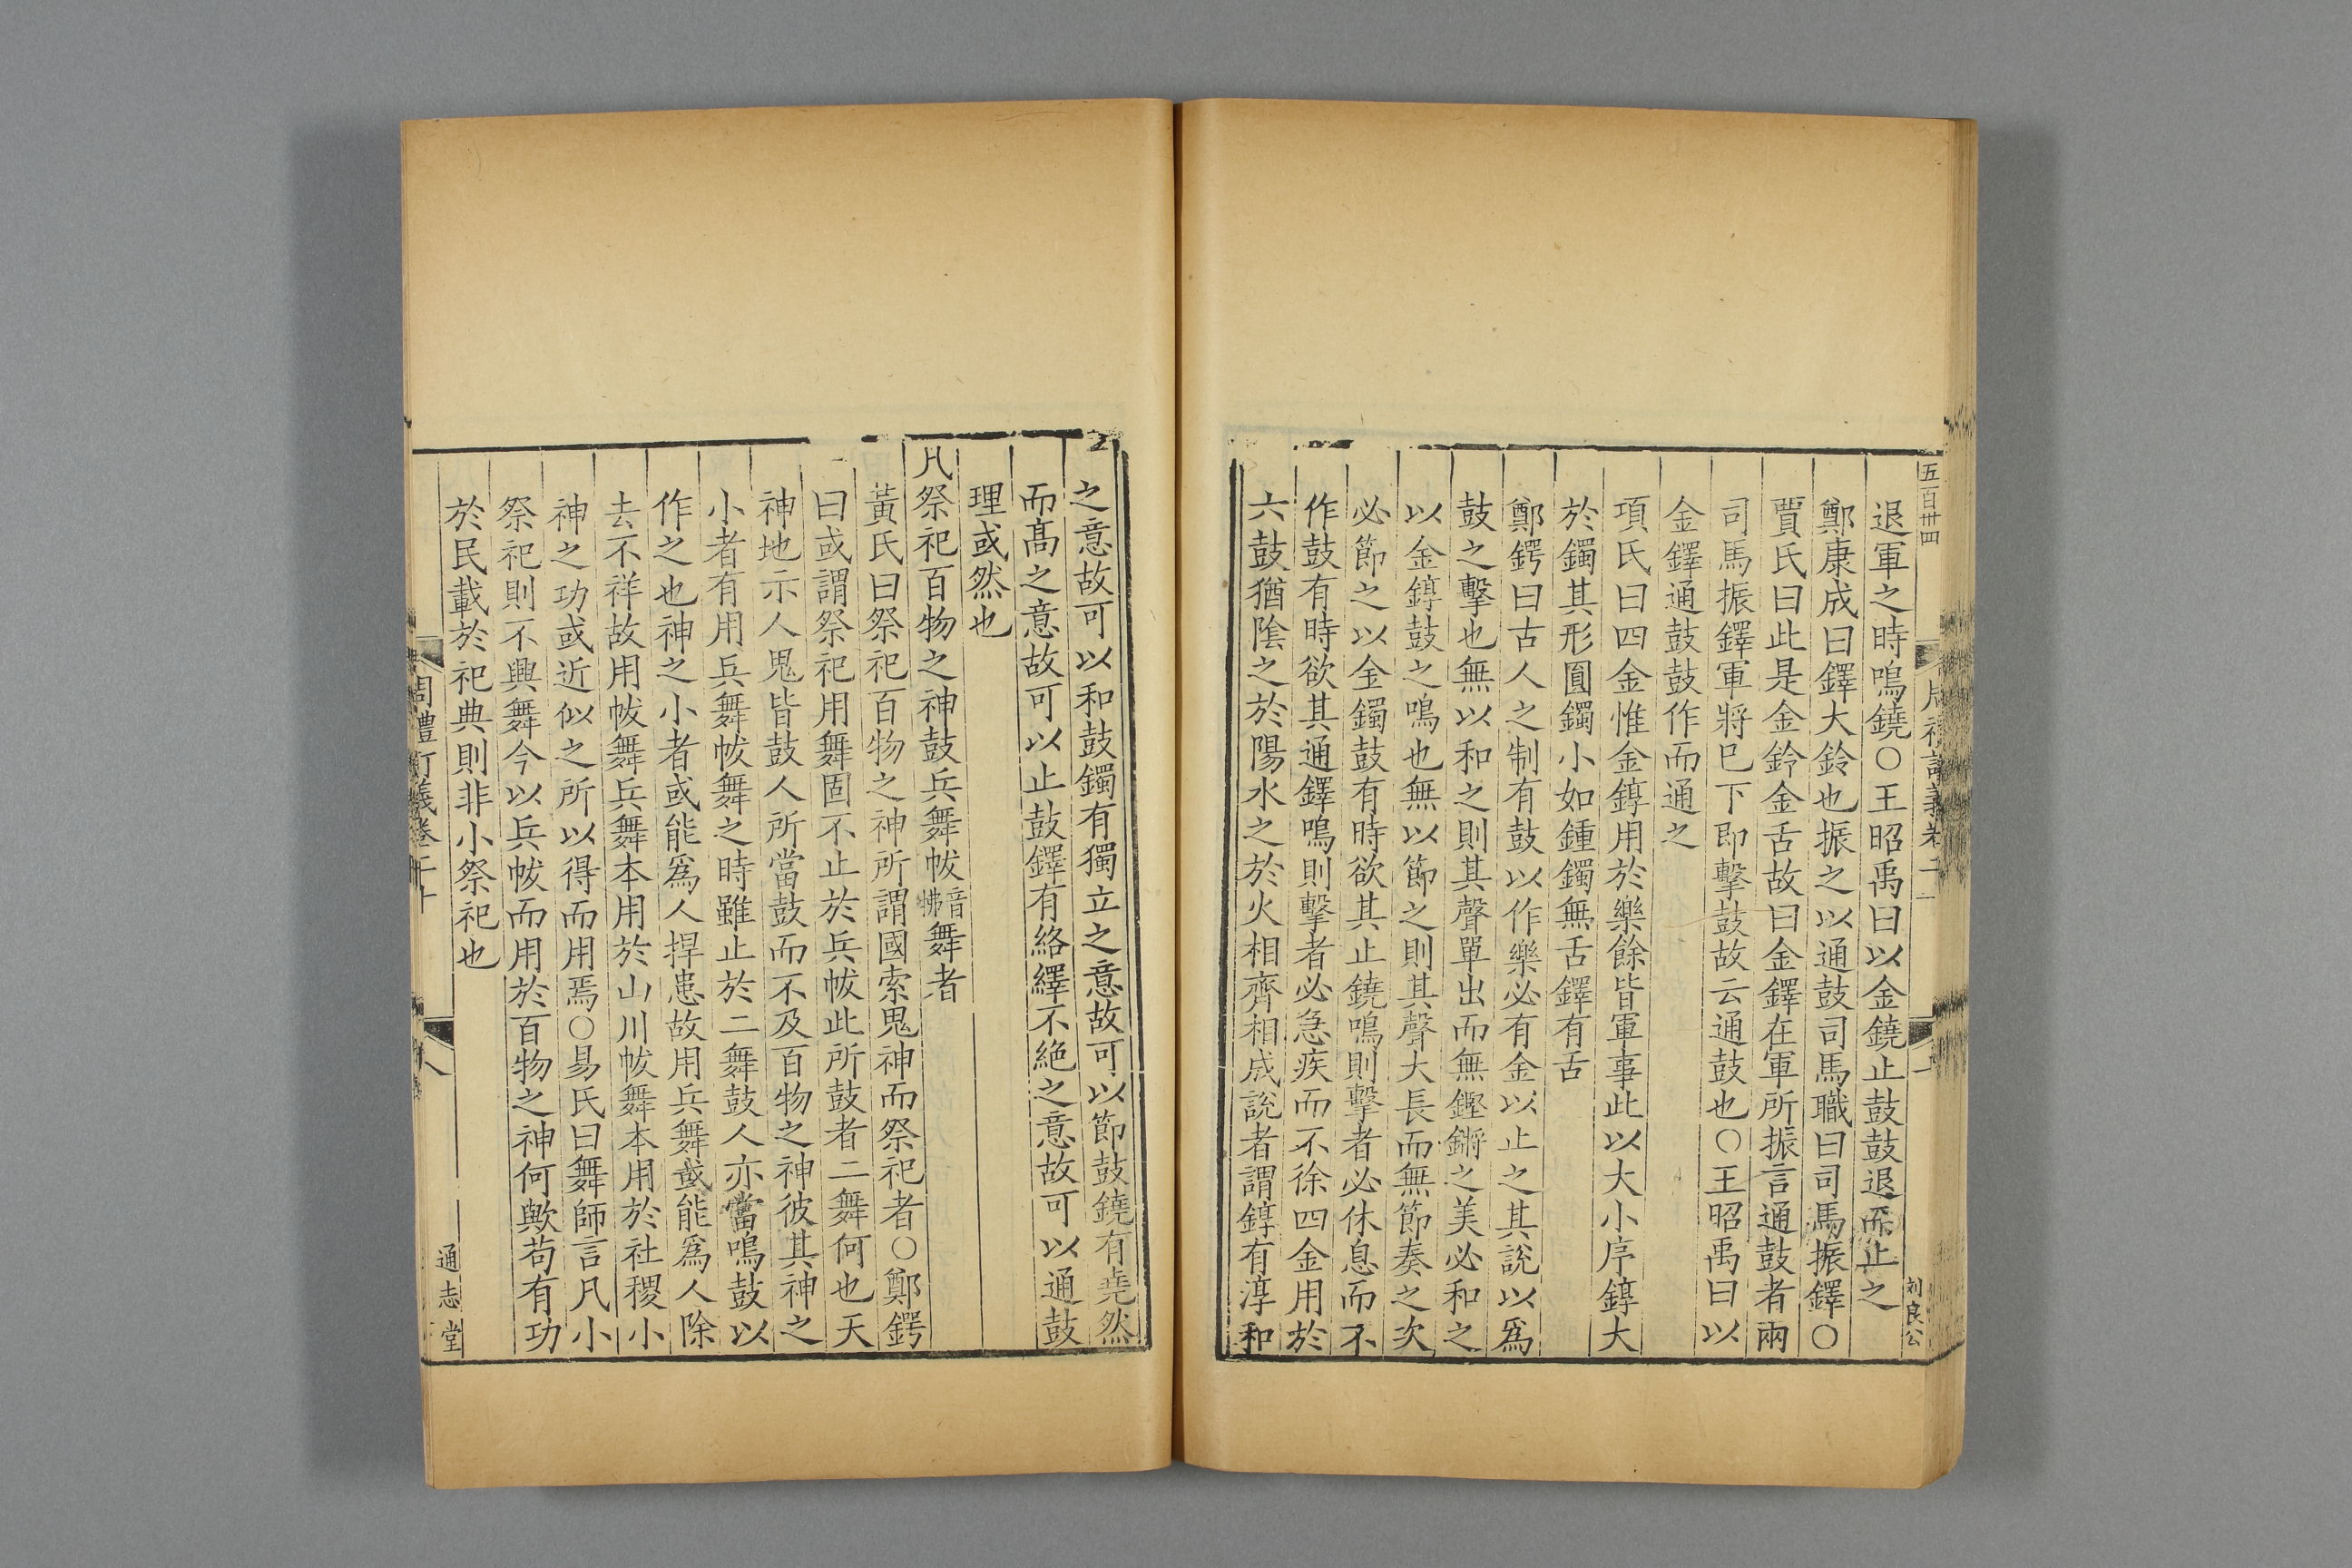 五百卅四
刘良公
退軍之時鳴鐃○王昭禹曰以金鐃止鼓鼓退而止之
鄭康成曰鐸大鈴也振之以通鼓司馬職曰司馬振鐸○
賈氏曰此是金鈴金舌故曰金鐸在軍所振言通鼓者兩
司馬振鐸軍將已下即擊鼓故云通鼓也○王昭禹曰以
金鐸通鼓鼓作而通之
項氏曰四金惟金錞用於樂餘皆軍事此以大小序錞大
於鐲其形圓鐲小如鍾鐲無舌鐸有舌
鄭鍔曰古人之制有鼓以作樂必有金以止之其說以爲
鼓之擊也無以和之則其聲單出而無鏗鏘之美必和之
以金錞鼓之鳴也無以節之則其聲大長而無節奏之次
必節之以金鐲鼓有時欲其止鐃鳴則擊者必休息而不
作鼓有時欲其通鐸鳴則擊者必急疾而不徐四金用於
六鼓猶陰之於陽水之於火相齊相成說者謂錞有淳和
之意故可以和鼓鐲有獨立之意故可以節鼓鐃有堯然
而髙之意故可以止鼓鐸有絡繹不絶之意故可以通鼓
理或然也
凡祭祀百物之神鼓兵舞帗音拂舞者
黃氏曰祭祀百物之神所謂國索鬼神而祭祀者○鄭鍔
曰或謂祭祀用舞固不止於兵帗此所鼓者二舞何也天
神地示人鬼皆鼓人所當鼓而不及百物之神彼其神之
小者有用兵舞帗舞之時雖止於二舞鼓人亦當鳴鼓以
作之也神之小者或能爲人捍患故用兵舞或能爲人除
去不祥故用帗舞兵舞本用於山川帗舞本用於社稷小
神之功或近似之所以得而用焉○易氏曰舞師言凡小
祭祀則不興舞今以兵帗而用於百物之神何歟苟有功
於民載於祀典則非小祭祀也
周禮訂義卷二十
八
通志堂